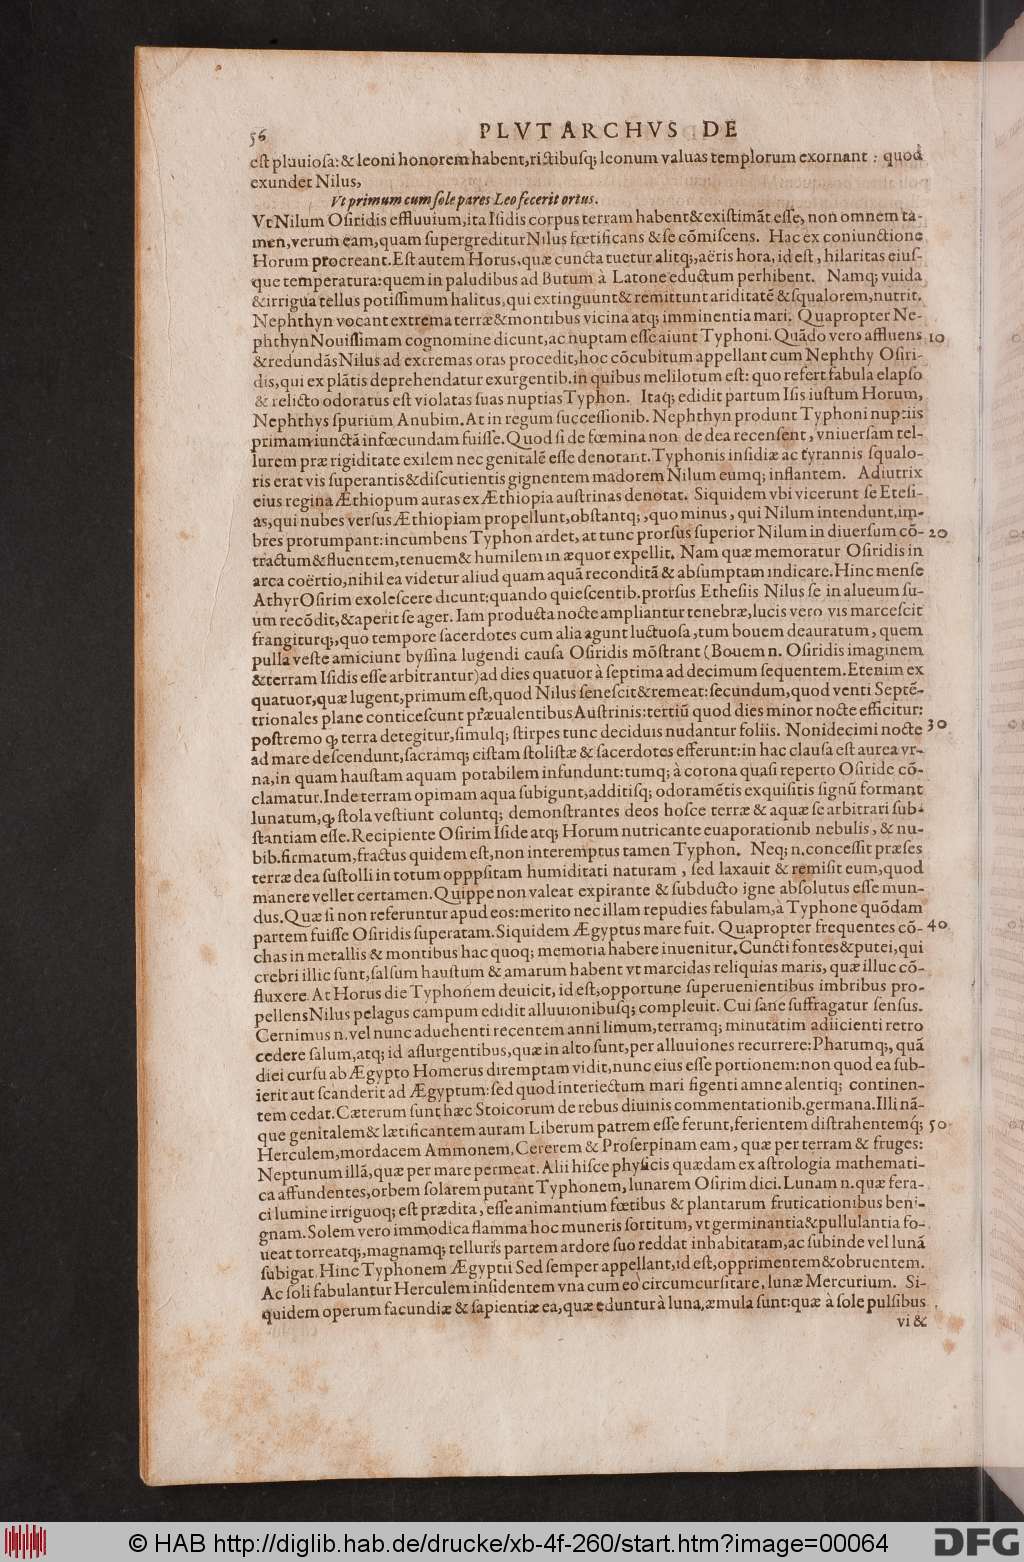 56
PLVTARCHVS DE
est pluuiosa: & leoni honorem habent, rictibusq; leonum valuas templorum exornant: quod
exundet Nilus,
Vt primum cum sole pares Leo fecerit ortus.
Vt Nilum Osiridis effluuium, ita Isidis corpus terram habent & existimãt esse, non omnem ta-
men, verum eam, quam supergreditur Nilus fœtificans & se cõmiscens. Hac ex coniunctione
Horum procreant. Est autem Horus, quæ cuncta tuetur alitq;, aëris hora, id est, hilaritas eius-
que temperatura: quem in paludibus ad Butum à Latone eductum perhibent. Namq; vuida
& irrigua tellus potissimum halitus, qui extinguunt & remittunt ariditatẽ & squalorem, nutrit.
Nephthyn vocant extrema terræ & montibus vicina atq; imminentia mari. Quapropter Ne-
phthyn Nouissimam cognomine dicunt, ac nuptam esse aiunt Typhoni. Quãdo vero affluens 10
& redundãs Nilus ad extremas oras procedit, hoc cõcubitum appellant cum Nephthy Osiri-
dis, qui ex plãtis deprehendatur exurgentib. in quibus melilotum est: quo refert fabula elapso
& relicto odoratus est violatas suas nuptias Typhon. Itaq; edidit partum Isis iustum Horum,
Nephthys spurium Anubim. At in regum successionib. Nephthyn produnt Typhoni nuptiis
primam iunctã infœcundam fuisse. Quod si de fœmina non de dea recensent, vniuersam tel-
lurem præ rigiditate exilem nec genitalẽ esse denotant. Typhonis insidiæ ac tyrannis squalo-
ris erat vis superantis & discutientis gignentem madorem Nilum eumq; inflantem. Adiutrix
eius regina Æthiopum auras ex Æthiopia austrinas denotat. Siquidem vbi vicerunt se Etesi-
as, qui nubes versus Æthiopiam propellunt, obstantq;, quo minus, qui Nilum intendunt, im-
bres prorumpant: incumbens Typhon ardet, at tunc prorsus superior Nilum in diuersum cõ- 20
tractum & fluentem, tenuem & humilem in æquor expellit. Nam quæ memoratur Osiridis in
arca coërtio, nihil ea videtur aliud quam aquã reconditã & absumptam indicare. Hinc mense
Athyr Osirim exolescere dicunt: quando quiescentib. prorsus Ethesiis Nilus se in alueum su-
um recõdit, & aperit se ager. Iam producta nocte ampliantur tenebræ, lucis vero vis marcescit
frangiturq;, quo tempore sacerdotes cum alia agunt luctuosa, tum bouem deauratum, quem
pulla veste amiciunt byssina lugendi causa Osiridis mõstrant (Bouem n. Osiridis imaginem
& terram Isidis esse arbitrantur) ad dies quatuor à septima ad decimum sequentem. Etenim ex
quatuor, quæ lugent, primum est, quod Nilus senescit & remeat: secundum, quod venti Septẽ-
trionales plane conticescunt præualentibus Austrinis: tertiũ quod dies minor nocte efficitur:
postremo q̃ terra detegitur, simulq; stirpes tunc deciduis nudantur foliis. Nonidecimi nocte 30
ad mare descendunt, sacramq; cistam stolistæ & sacerdotes efferunt: in hac clausa est aurea vr-
na, in quam haustam aquam potabilem infundunt: tumq; à corona quasi reperto Osiride cõ-
clamatur. Inde terram opimam aqua subigunt, additisq; odoramẽtis exquisitis signũ formant
lunatum, q̃ stola vestiunt coluntq; demonstrantes deos hosce terræ & aquæ se arbitrari sub-
stantiam esse. Recipiente Osirim Iside atq; Horum nutricante euaporationib nebulis, & nu-
bib. firmatum, fractus quidem est, non interemptus tamen Typhon. Neq; n. concessit præses
terræ dea sustolli in totum opppsitam humiditati naturam, sed laxauit & remisit eum, quod
manere vellet certamen. Quippe non valeat expirante & subducto igne absolutus esse mun-
dus. Quæ si non referuntur apud eos: merito nec illam repudies fabulam, à Typhone quõdam
partem fuisse Osiridis superatam. Siquidem Ægyptus mare fuit. Quapropter frequentes cõ- 40
chas in metallis & montibus hac quoq; memoria habere inuenitur. Cuncti fontes & putei, qui
crebri illic sunt, salsum haustum & amarum habent vt marcidas reliquias maris, quæ illuc cõ-
fluxere. At Horus die Typhonem deuicit, id est, opportune superuenientibus imbribus pro-
pellens Nilus pelagus campum edidit alluuionibusq; compleuit. Cui sane suffragatur sensus.
Cernimus n. vel nunc aduehenti recentem anni limum, terramq; minutatim adiicienti retro
cedere salum, atq; id assurgentibus, quæ in alto sunt, per alluuiones recurrere: Pharumq;, quã
diei cursu ab Ægypto Homerus diremptam vidit, nunc eius esse portionem: non quod ea sub-
ierit aut scanderit ad Ægyptum: sed quod interiectum mari figenti amne alentiq; continen-
tem cedat. Cæterum sunt hæc Stoicorum de rebus diuinis commentationib. germana. Illi nã-
que genitalem & lætificantem auram Liberum patrem esse ferunt, ferientem distrahentemq́; 50
Herculem, mordacem Ammonem, Cererem & Proserpinam eam, quæ per terram & fruges:
Neptunum illã, quæ per mare permeat. Alii hisce physicis quædam ex astrologia mathemati-
ca affundentes, orbem solarem putant Typhonem, lunarem Osirim dici. Lunam n. quæ fera-
ci lumine irriguoq; est prædita, esse animantium fœtibus & plantarum fruticationibus beni-
gnam. Solem vero immodica flamma hoc muneris sortitum, vt germinantia & pullulantia fo-
ueat torreatq;, magnamq; telluris partem ardore suo reddat inhabitatam, ac subinde vel lunã
subigat. Hinc Typhonem Ægyptii Sed semper appellant, id est, opprimentem & obruentem.
Ac soli fabulantur Herculem insidentem vna cum eo circumcursitare, lunæ Mercurium. Si-
quidem operum facundiæ & sapientiæ ea, quæ eduntur à luna, æmula sunt: quæ à sole pulsibus
vi &
© HAB http://diglib.hab.de/drucke/xb-4f-260/start.htm?image=00064
DFG